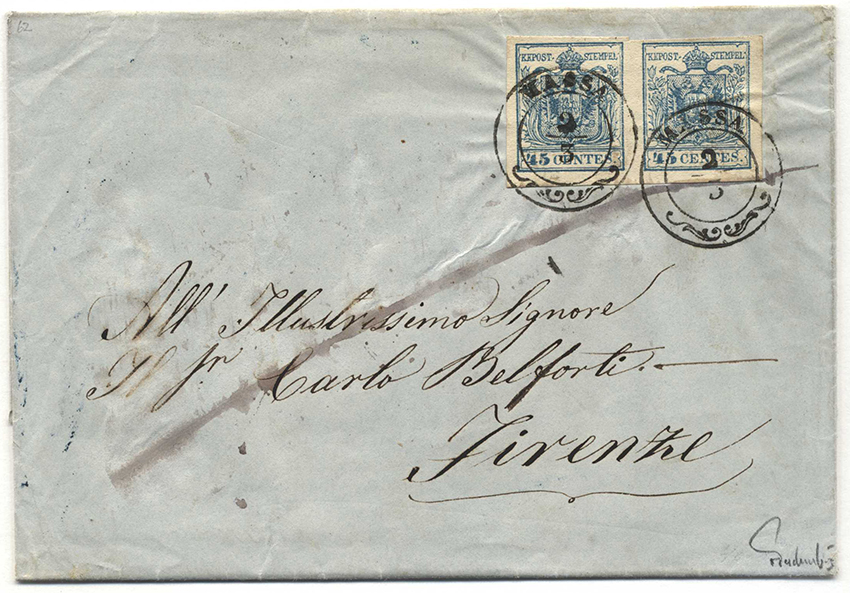 62
KKPOST-STEMPEL KKPOST-STEMPEL
MASSA MASSA
2 2
3 3
45 CENTES. 45 CENTES.
All' Illustrissimo Signore
Il Sr Carlo Belforti.
Firenze